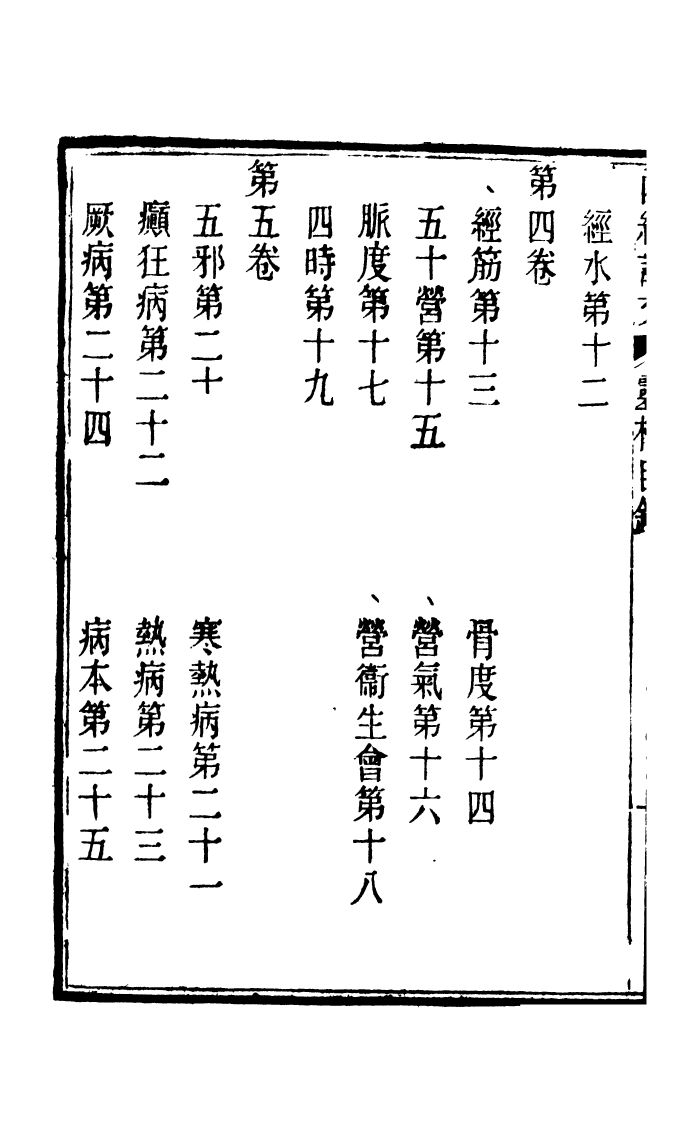 經水第十二
第四卷
、經筋第十三
骨度第十四
五十營第十五
、營氣第十六
脈度第十七
、營衞生會第十八
四時第十九
第五卷
五邪第二十
寒熱病第二十一
癲狂病第二十二
熱病第二十三
厥病第二十四
病本第二十五